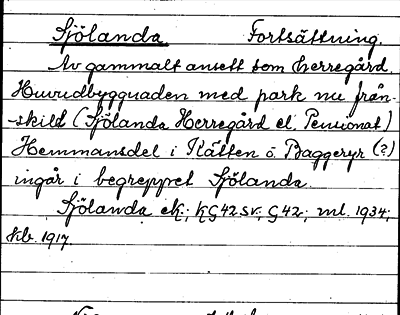 Sjölanda Fortsättning.
Av gammalt ansett som herregård.
Huvudbyggnaden med park nu från-
skild (Sjölanda Herregård el. Pensionat)
Hemmansdel i Kätten o. Baggeryr (?)
ingår i begreppet Sjölanda.
Sjölanda ek.; KG 42 sv.; G 42; ml. 1934;
kb. 1917.